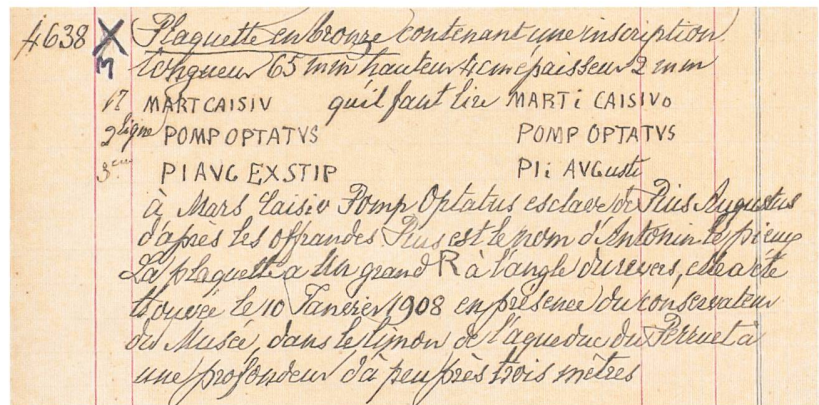 4638 X Plaquette en bronze contenant une inscription
M longueur 65 mm hauteur 4cm épaisseur 2 mm
MART CAISIV qu'il faut lire MARTi CAISIVo
2 ligne POMP OPTATVS POMP OPTATVS
3em PI AVG EX STIP PIi AVGusti
à Mars Caisiv Pomp Optatus esclave de Pius Augustus
d'après les offrandes Pius est le nom d'Antonin le pieux
La plaquette a un grand R à l'angle du revers, elle a été
trouvée le 10 Janvier 1908 en présence du conservateur
du Musée, dans le limon de l'aqueduc du à
une profondeur d'à peu près trois mètres